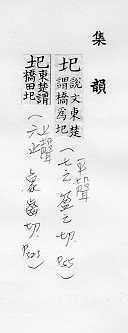 集韻
圯
說文東楚
謂橋為圯
平聲
(七之 盈之切. P.55)
圯
東楚謂
橋曰圯
上聲
(六止 象齒切. P.323)